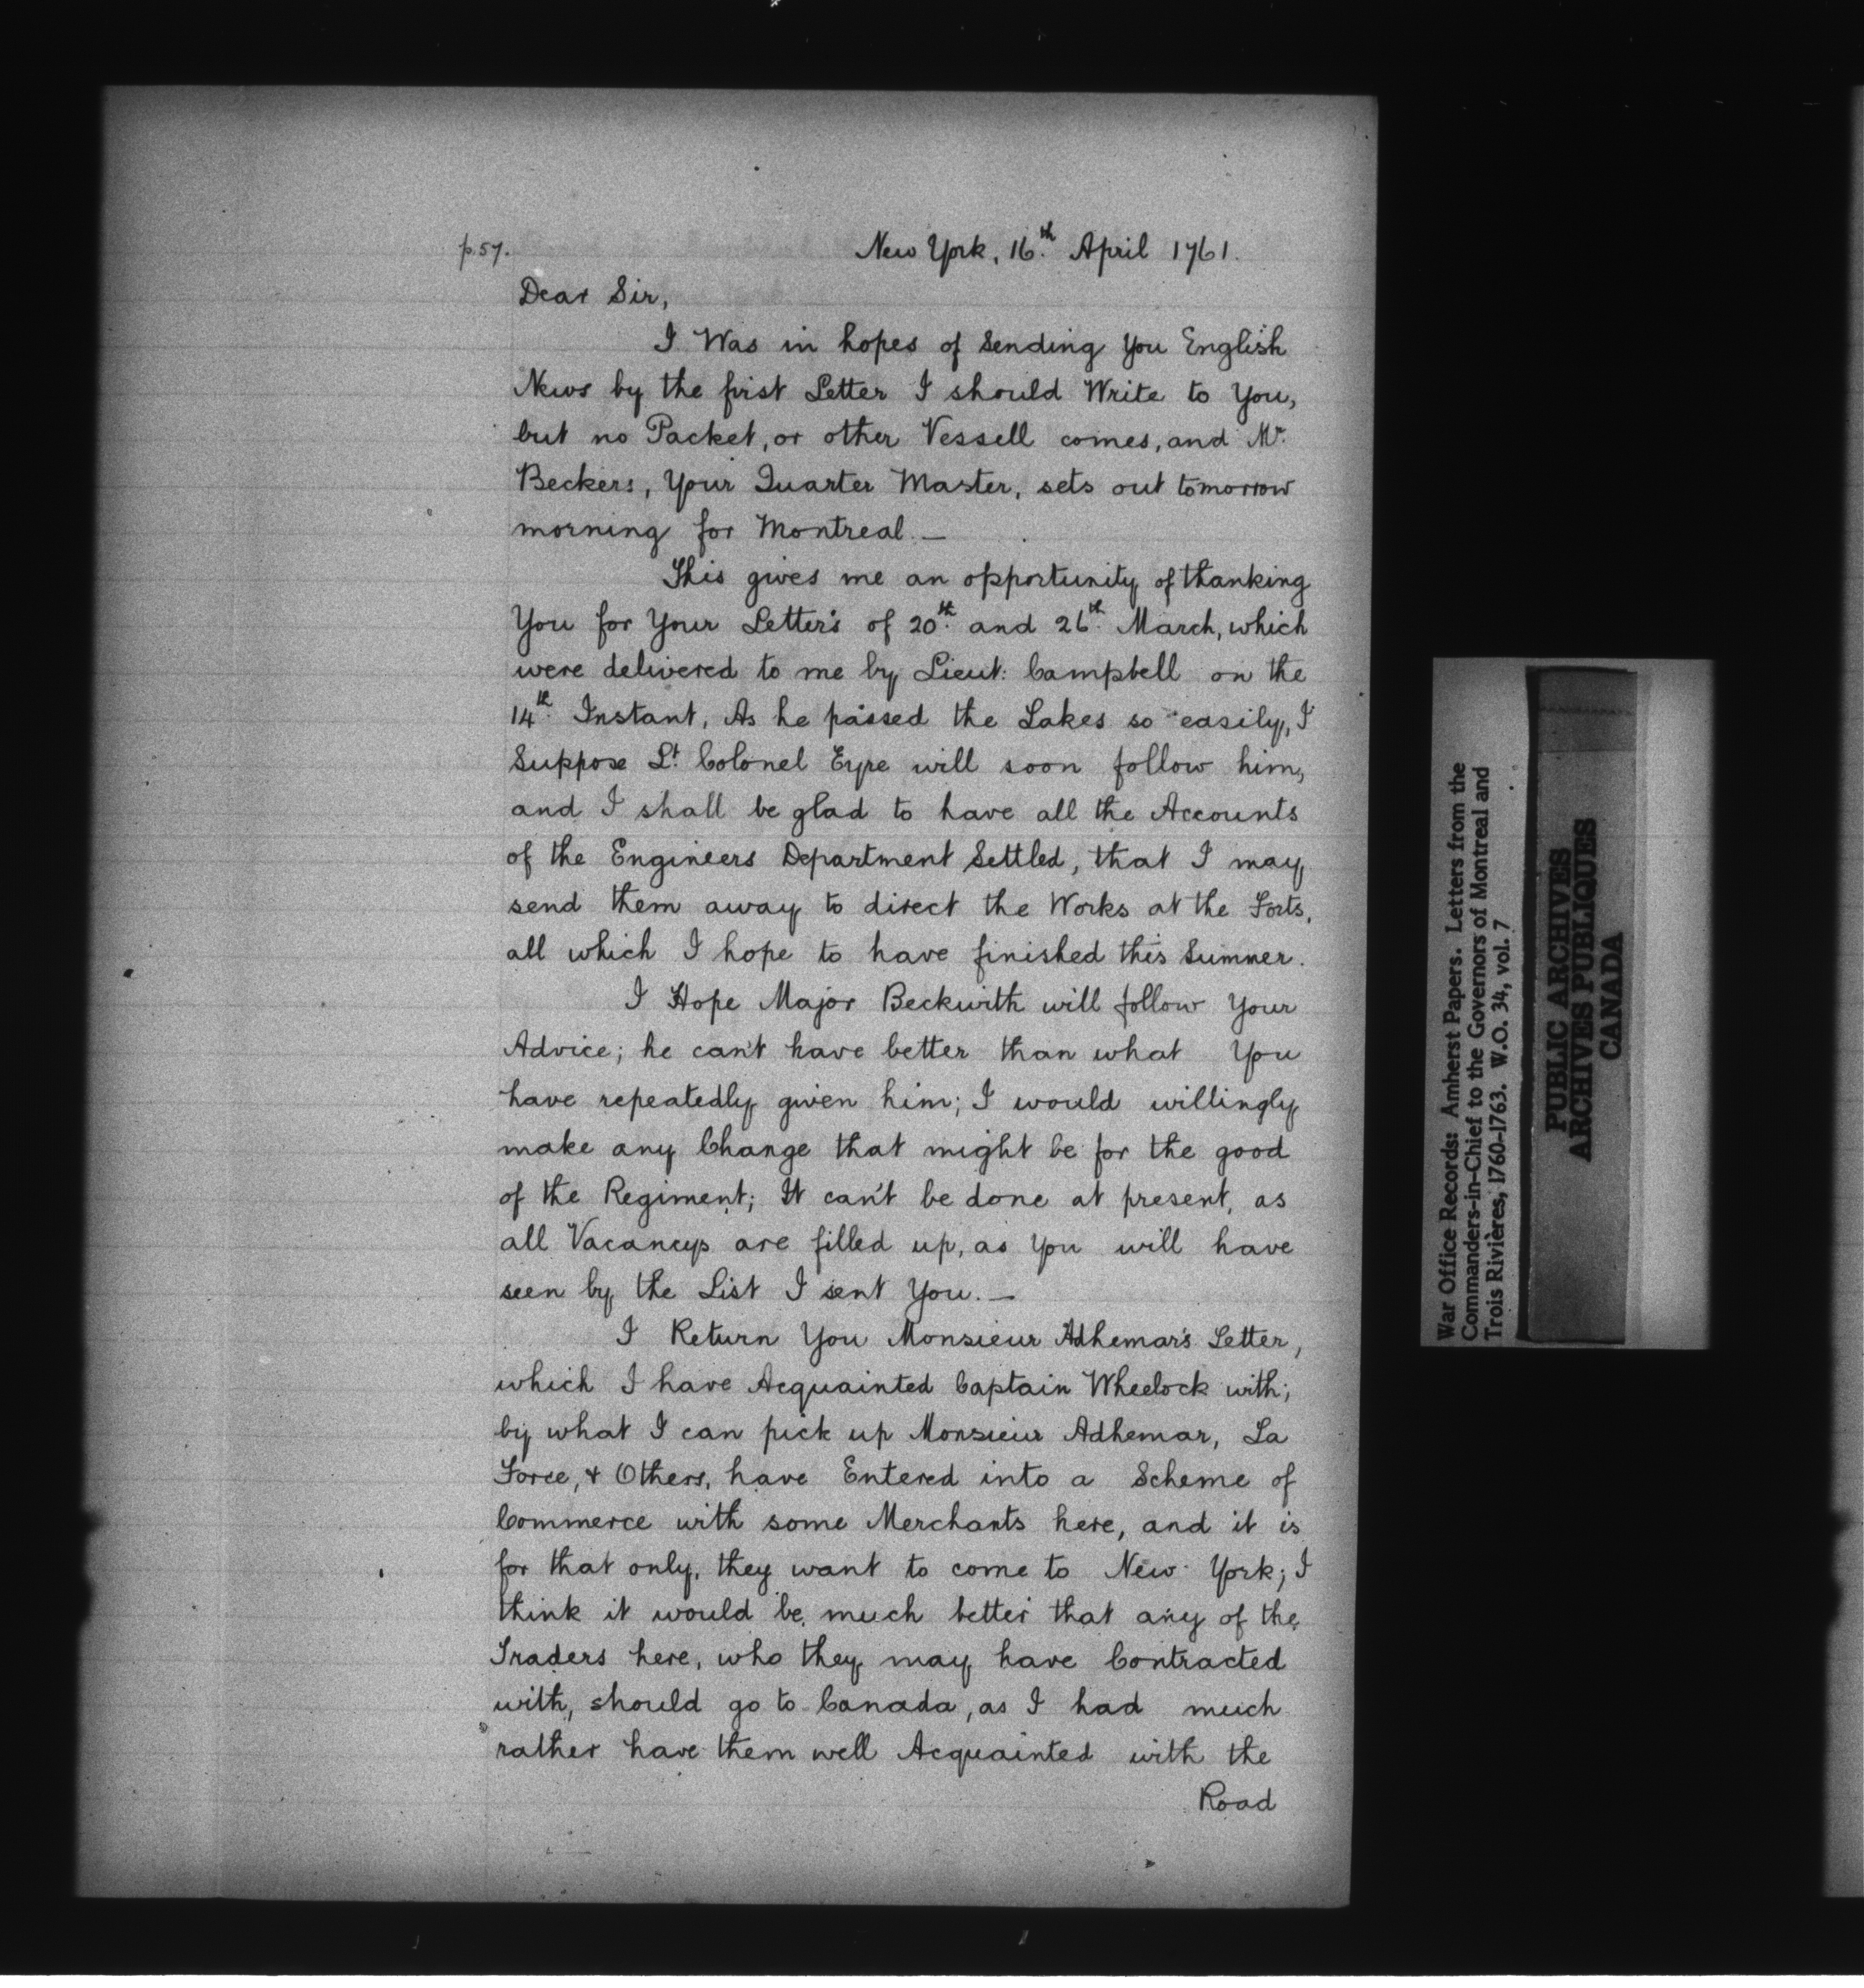 p. 57.
New York, 16.th April 1761.
Dear Sir,
I Was in hopes of Sending You English
News by the first Letter I should Write to You,
but no Packet, or other Vessell comes, and Mr.
Beckers, Your Quarter Master, sets out tomorrow
morning for Montreal. —
This gives me an opportunity of thanking
You for Your Letters of 20.th and 26.th March, which
were delivered to me by Lieut: Campbell on the
14.th Instant, As he passed the Lakes so easily, I
Suppose Lt. Colonel Eyre will soon follow him,
and I shall be glad to have all the Accounts
of the Engineers Department Settled, that I may
send them away to direct the Works at the Forts,
all which I hope to have finished this Summer.
I Hope Major Beckwith will follow Your
Advice; he can't have better than what You
have repeatedly given him; I would willingly
make any Change that might be for the good
of the Regiment; It can't be done at present, as
all Vacancys are filled up, as You will have
seen by the List I sent You. —
I Return You Monsieur Adhemar's Letter,
which I have Acquainted Captain Wheelock with;
by what I can pick up Monsieur Adhemar, La
Force, & Others, have Entered into a Scheme of
Commerce with some Merchants here, and it is
for that only, they want to come to New York; I
think it would be much better that any of the
Traders here, who they may have Contracted
with, should go to Canada, as I had much
rather have them well Acquainted with the
Road
War Office Records: Amherst Papers. Letters from the
Commanders-in-Chief to the Governors of Montreal and
Trois Rivières, 1760-1763. W.O. 34, vol. 7
PUBLIC ARCHIVES
ARCHIVES PUBLIQUES
CANADA